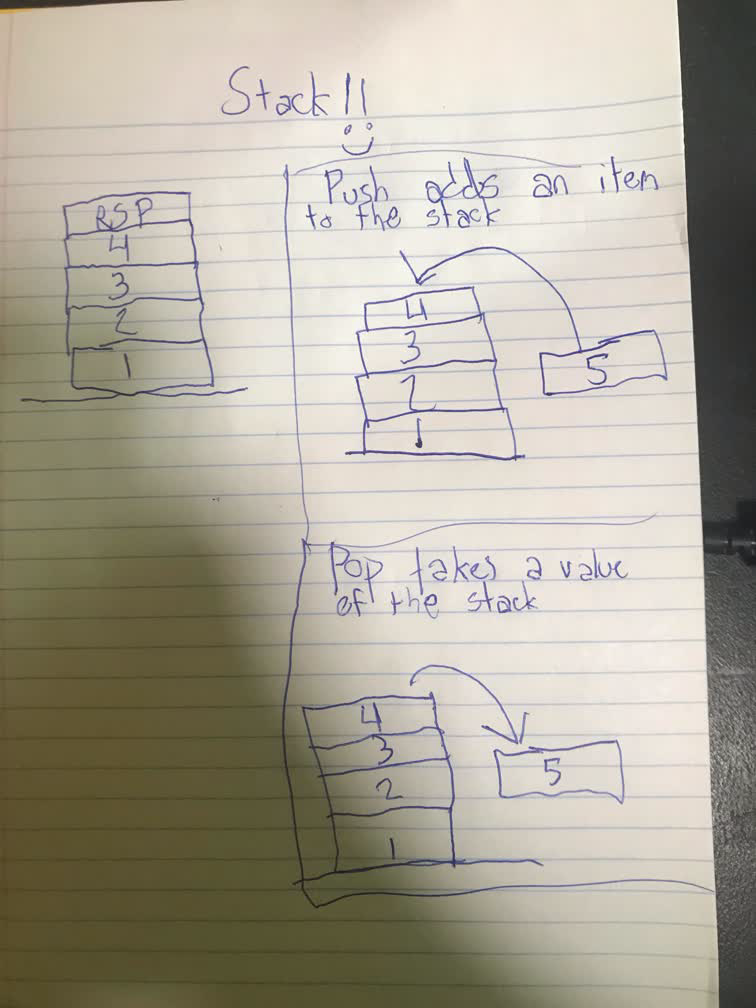 Stack!!
RSP
4
3
2
1
Push adds an item
to the stack
4
3
2
1
5
Pop takes a value
of the stack
4
3
2
1
5